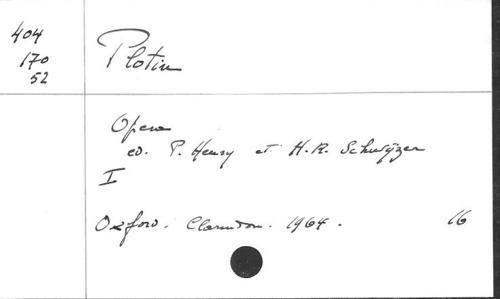 404
170
52
Plotin
Opera
ed. P. Henry et H.R. Schwyzer
I
Oxford. Clarendon. 1964. 16